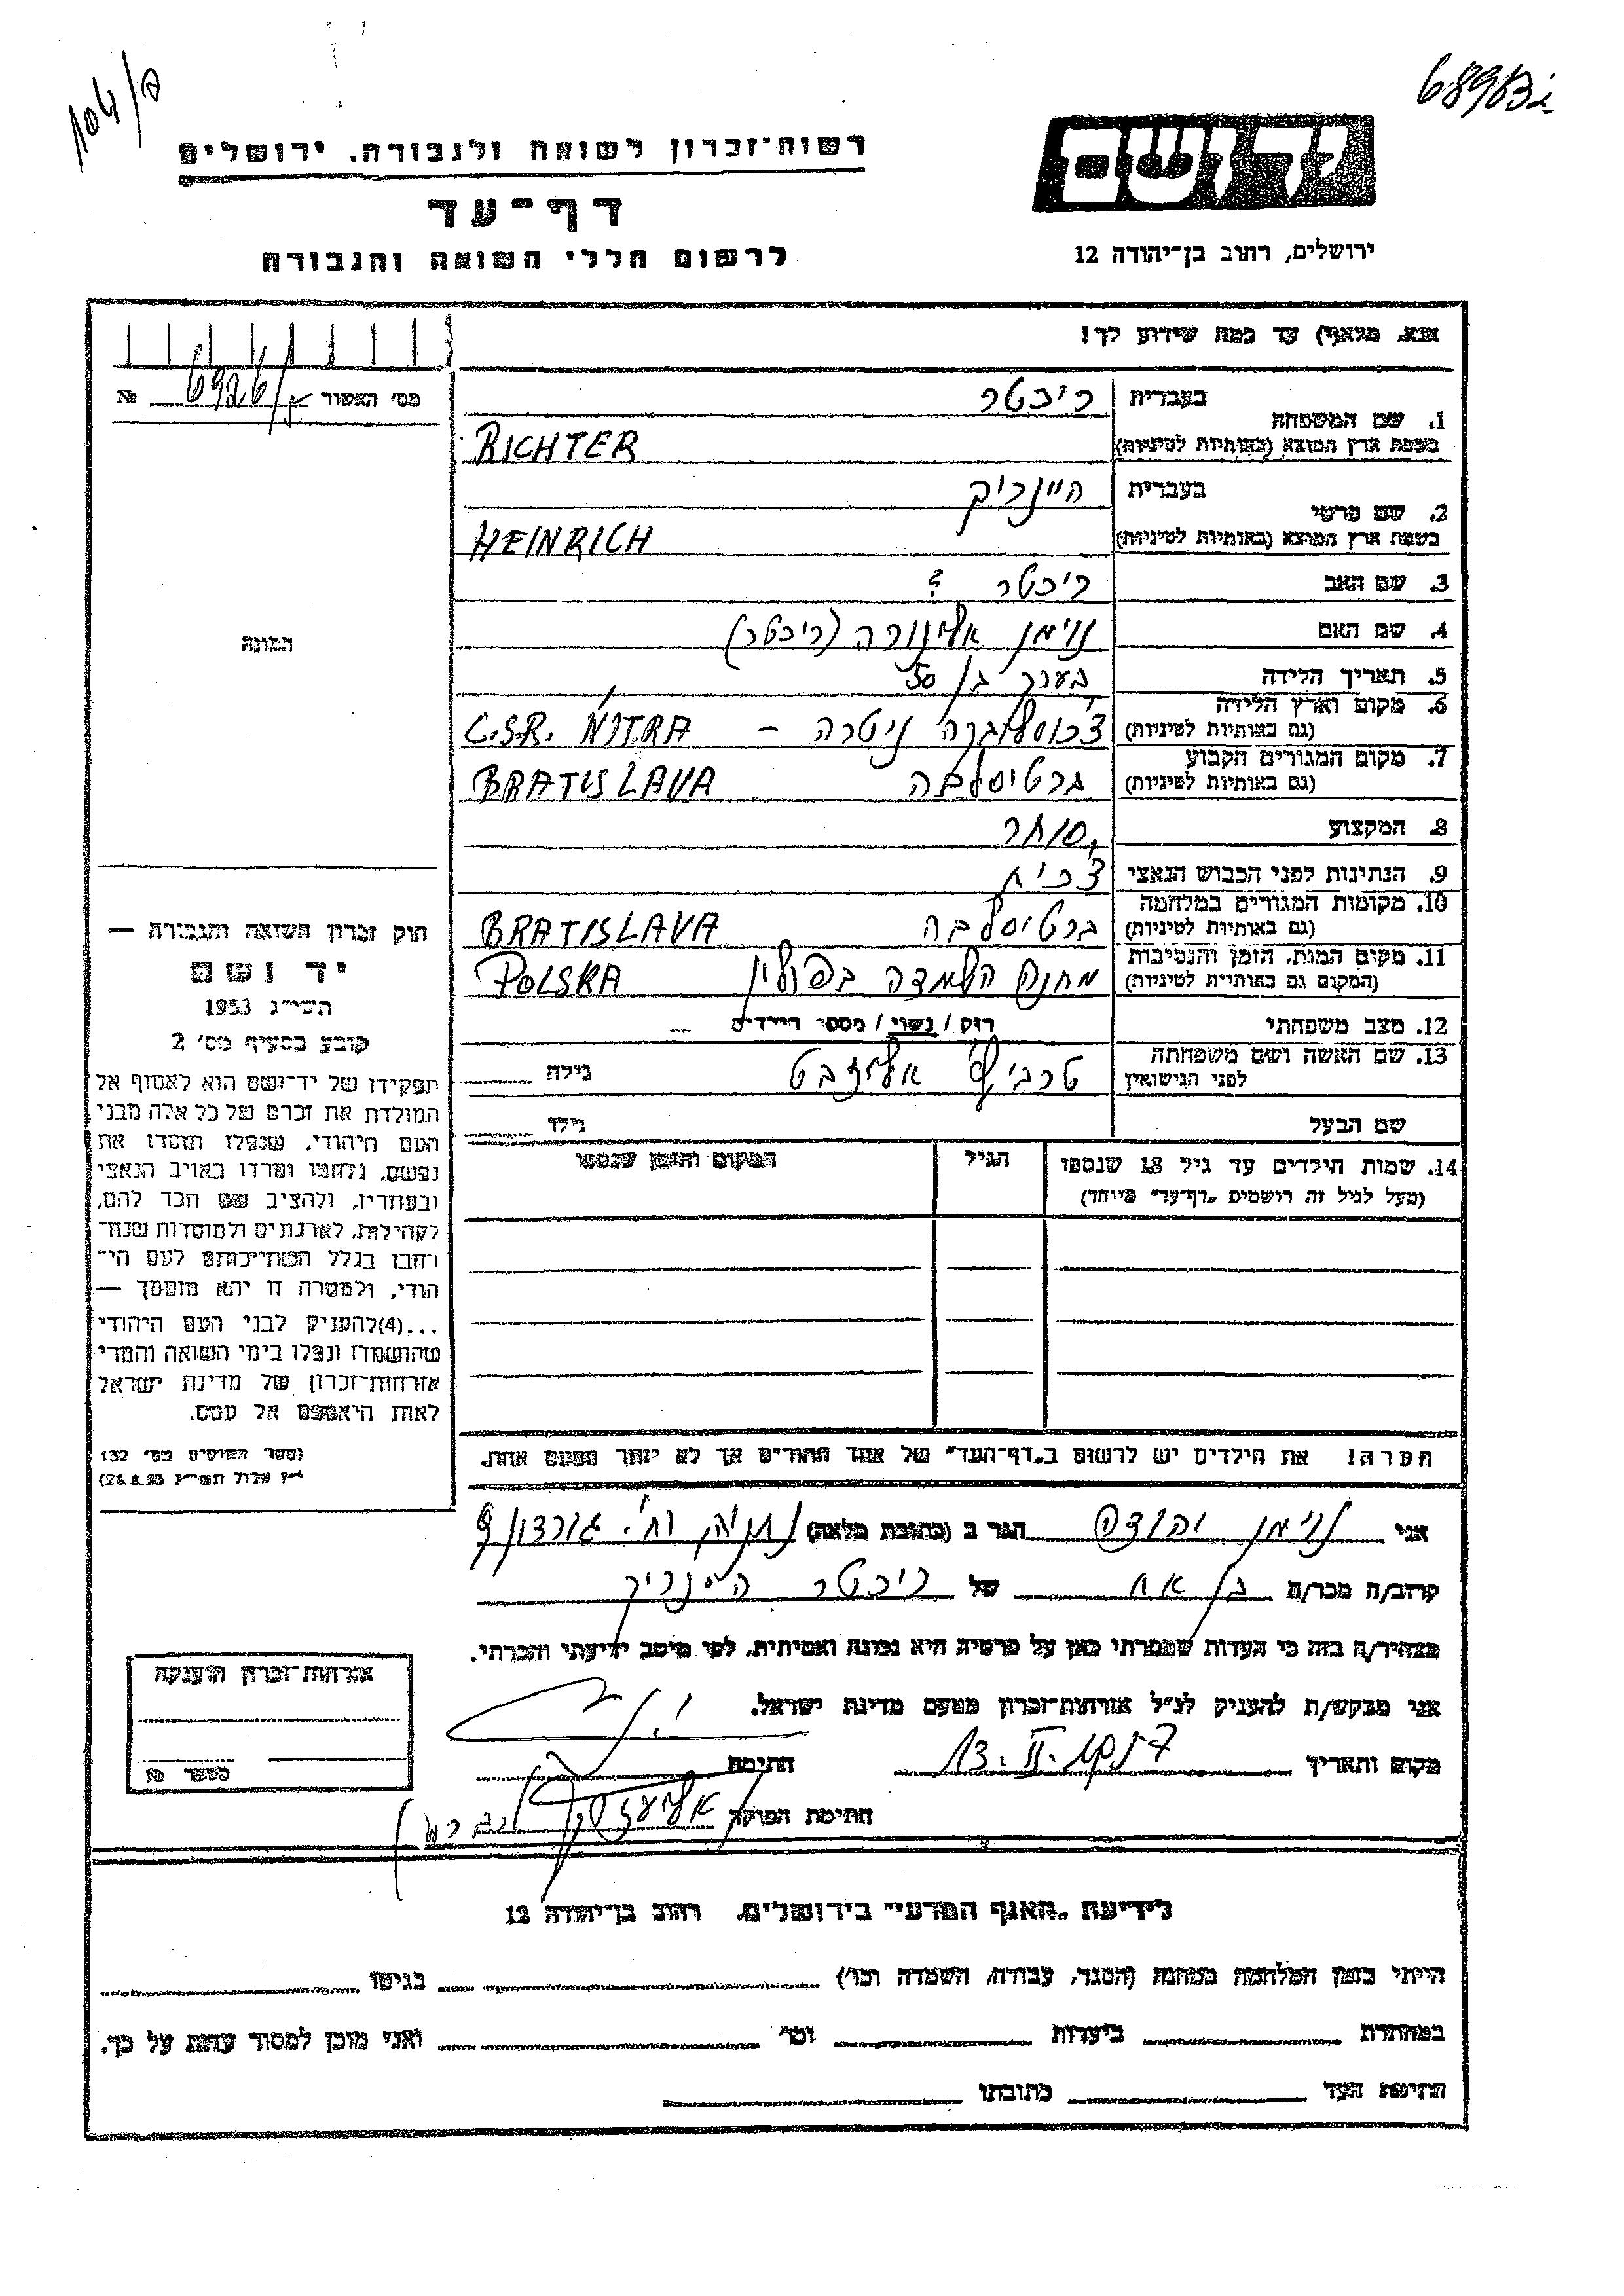 104/ח
רשות־זכרון לשואה ולגבורה, ירושלים
דף־עד
לרשום חללי השואה והגבורה
ירושלים, רחוב בן־יהודה 12
נא, מלאו׳) עד כמה שידוע לך!
מס׳ האשור 6926/א №
1. שם המשפחה
בעברית ריכטר
בשפת ארץ המוצא (באותיות לטיניות) RICHTER
2. שם פרטי
בעברית היינריך
בשפת ארץ המוצא (באותיות לטיניות) HEINRICH
3. שם האב ריכטר ?
4. שם האם נוימן אלינורה (ריכטר)
5. תאריך הלידה בערך בן 50
6. מקום וארץ הלידה (גם באותיות לטיניות) צ'כוסלובקיה ניטרה – C.S.R. NITRA
7. מקום המגורים הקבוע (גם באותיות לטיניות) ברטיסלבה BRATISLAVA
8. המקצוע סוחר
9. הנתינות לפני הכבוש הנאצי צ'כית
10. מקומות המגורים במלחמה (גם באותיות לטיניות) ברטיסלבה BRATISLAVA
11. מקום המות, הזמן והנסיבות (המקום גם באותיות לטיניות) מחנה השמדה בפולין POLSKA
12. מצב משפחתי רווק / נשוי / מספר הילדים
13. שם האשה ושם משפחתה לפני הנישואין אליזבט גילה
שם הבעל גילו
14. שמות הילדים עד גיל 18 שנספו (מעל לגיל זה רושמים „דף־עד" מיוחד)
הגיל
המקום והזמן שנספו
התמונה
חוק זכרון השואה והגבורה —
יד ושם
תשי״ג 1953
קובע בסעיף מס׳ 2
תפקידו של יד־ושם הוא לאסוף אל
המולדת את זכרם של כל אלה מבני
העם היהודי, שנפלו ומסרו את
נפשם, נלחמו ומרדו באויב הנאצי
ובעוזריו, ולהציב שם וזכר להם,
לקהילות, לארגונים ולמוסדות שנח־
רבו בגלל השתייכותם לעם הי־
הודי, ולמטרה זו יהא מוסמך —
...(4)להעניק לבני העם היהודי
שהושמדו ונפלו בימי השואה והמרי
אזרחות־זכרון של מדינת ישראל
לאות היאספם אל עמם.
(ספר החוקים מס׳ 132
י״ז אלול תשי״ג 28.8.53)
הערה! את הילדים יש לרשום ב„דף־העד" של אחד ההורים אך לא יותר מפעם אחת.
אני נוימן יהודה הגר ב (כתובת מלאה) נתניה, רח'. גורדון 9
קרוב/ה מכר/ה בן אח של ריכטר היינריך
מצהיר/ה בזה כי העדות שמסרתי כאן על פרטיה היא נכונה ואמיתית, לפי מיטב ידיעתי והכרתי.
אני מבקש/ת להעניק לנ״ל אזרחות־זכרון מטעם מדינת ישראל.
מקום ותאריך 13. II. חתימה
חתימת הפוקד
אזרחות־זכרון הוענקה
מספר №
לידיעת „האגף המדעי" בירושלים, רחוב בן־יהודה 12
הייתי בזמן המלחמה במחנה (הסגר, עבודה, השמדה וכו׳) בגיטו
במחתרת ביערות וכו׳ ואני מוכן למסור עדות על כך.
חתימת העד כתובתו